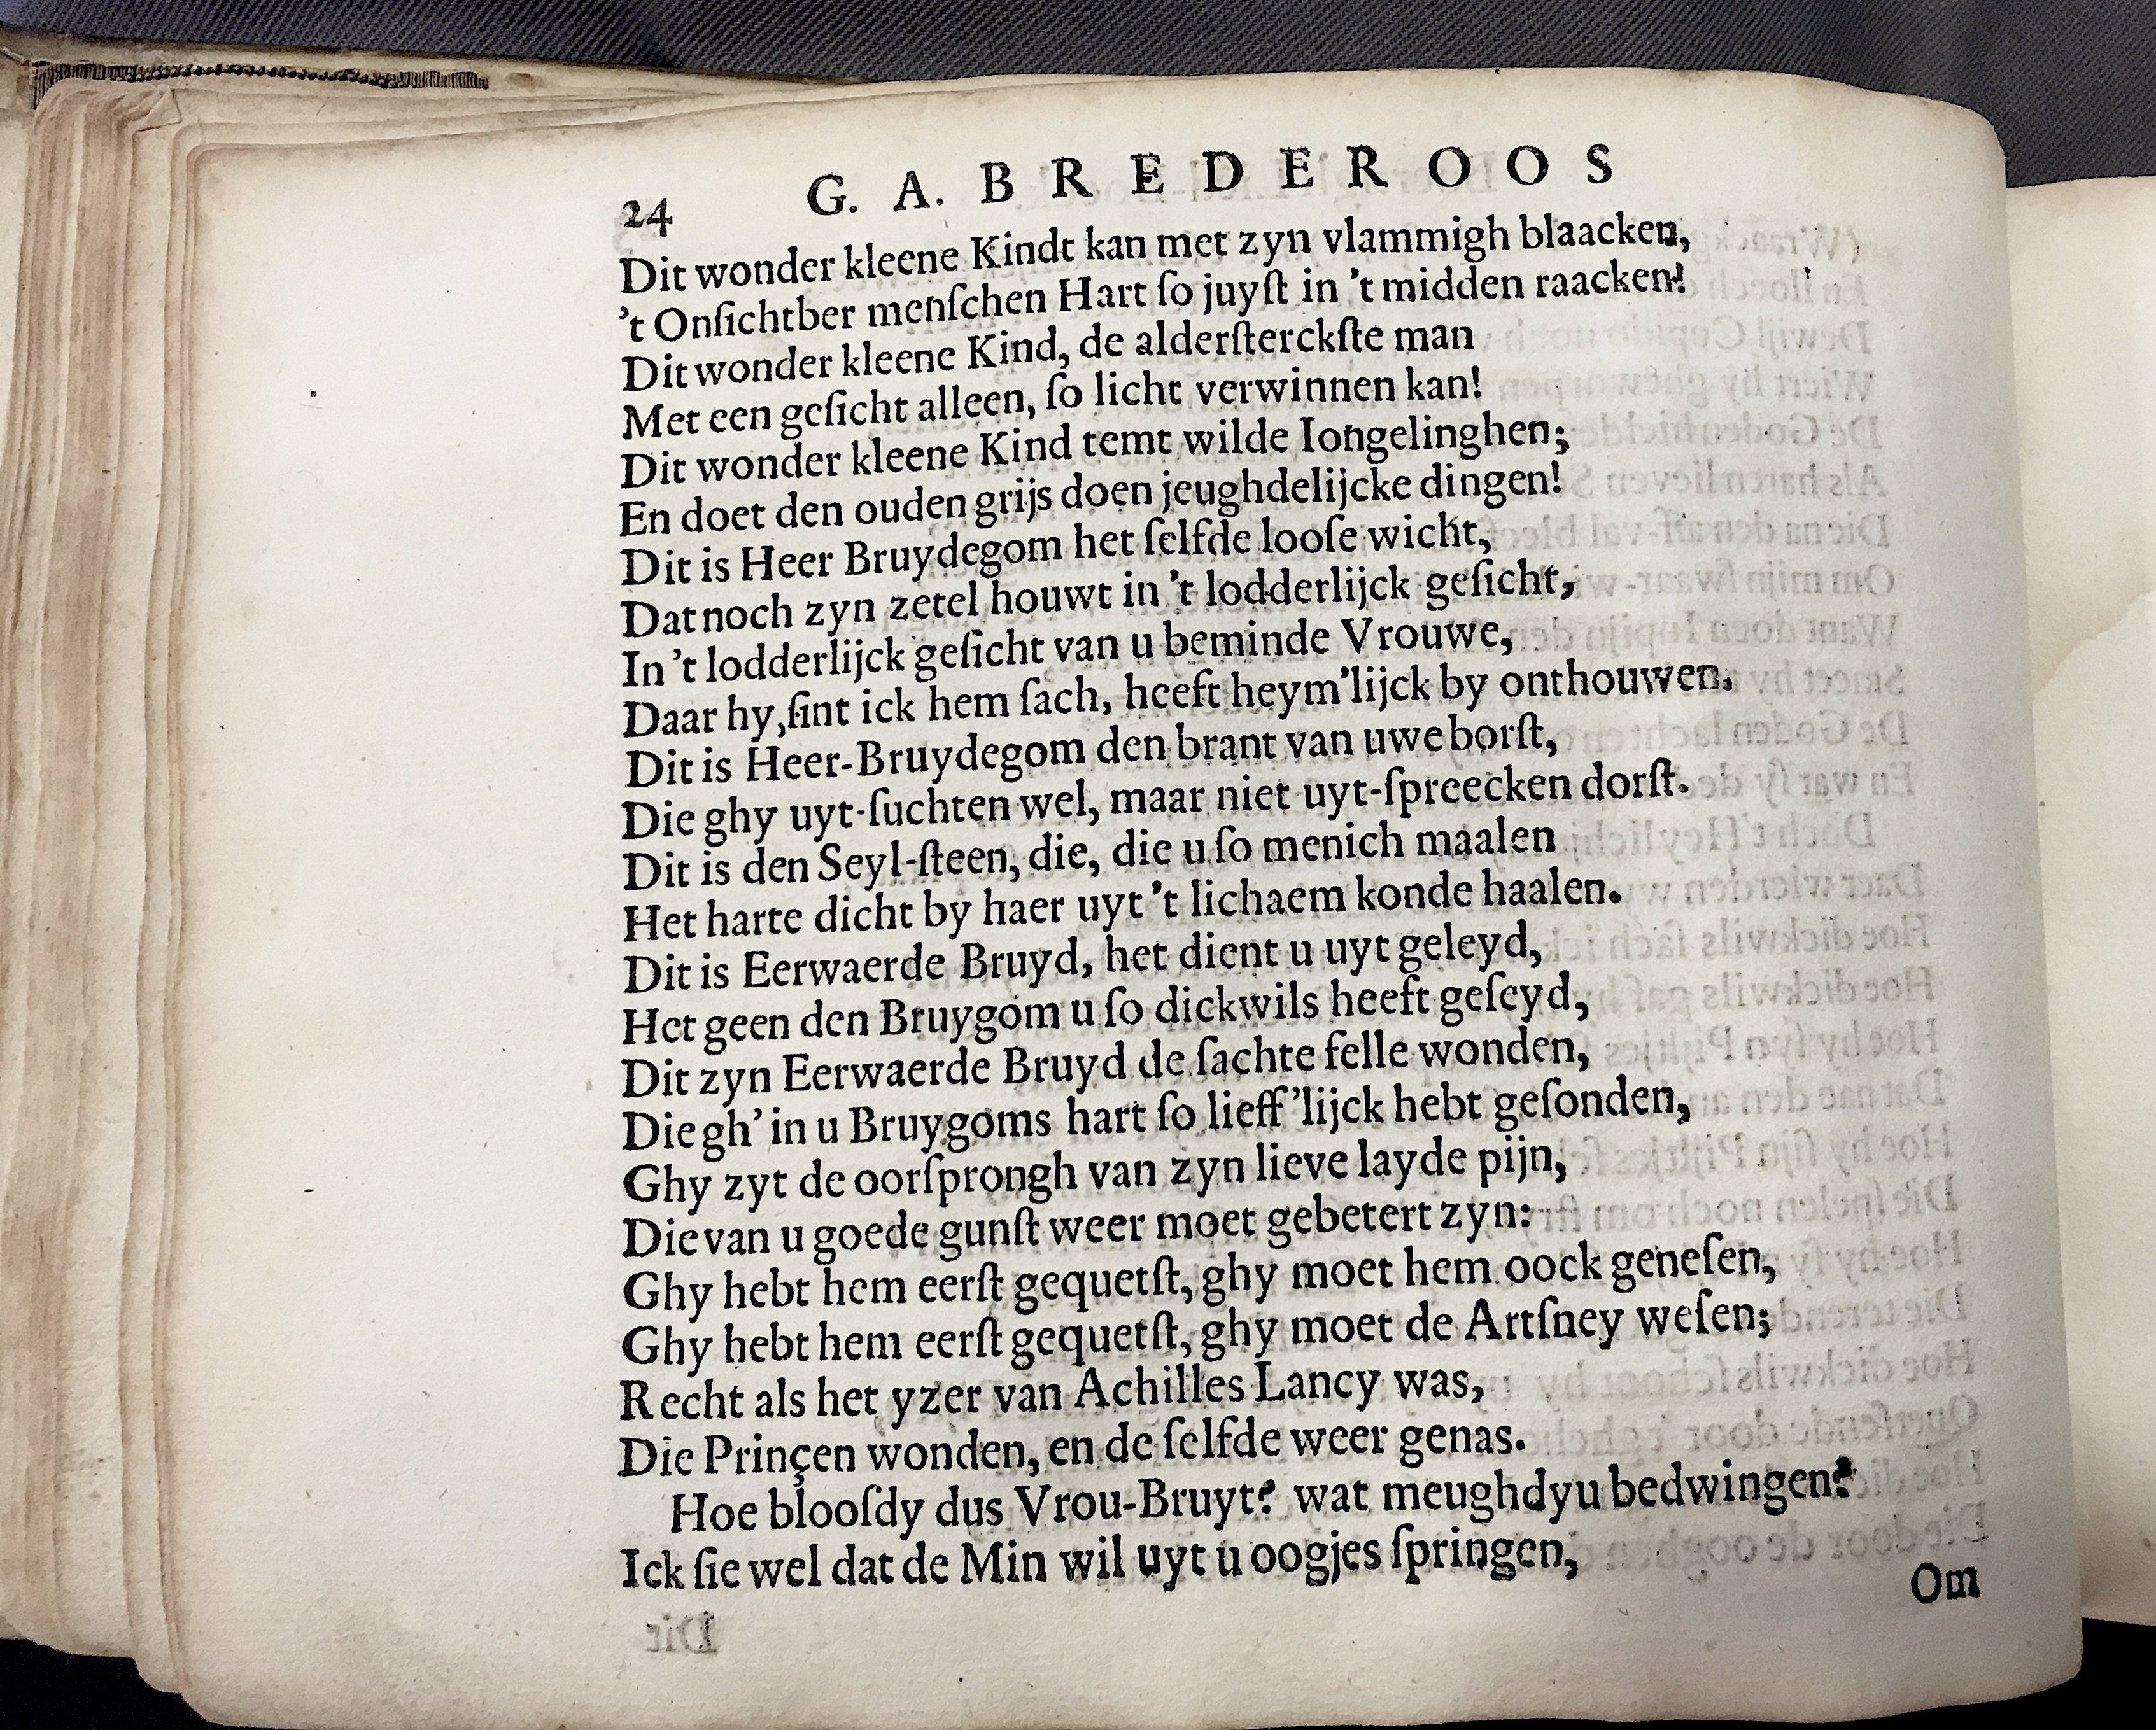 24 G. A. BREDEROOS
Dit wonder kleene Kindt kan met zyn vlammigh blaacken,
't Onſichtber menſchen Hart ſo juyſt in 't midden raacken!
Dit wonder kleene Kind, de alderſterckſte man
Met een geſicht alleen, ſo licht verwinnen kan!
Dit wonder kleene Kind temt wilde Iongelinghen;
En doet den ouden grijs doen jeughdelijcke dingen!
Dit is Heer Bruydegom het ſelfde looſe wicht,
Dat noch zyn zetel houwt in 't lodderlijck geſicht,
In 't lodderlijck geſicht van u beminde Vrouwe,
Daar hy, ſint ick hem ſach, heeft heym'lijck by onthouwen.
Dit is Heer-Bruydegom den brant van uwe borſt,
Die ghy uyt-ſuchten wel, maar niet uyt-ſpreecken dorſt.
Dit is den Seyl-ſteen, die, die u ſo menich maalen
Het harte dicht by haer uyt 't lichaem konde haalen.
Dit is Eerwaerde Bruyd, het dient u uyt geleyd,
Het geen den Bruygom u ſo dickwils heeft geſeyd,
Dit zyn Eerwaerde Bruyd de ſachte felle wonden,
Die gh' in u Bruygoms hart ſo lieff'lijck hebt geſonden,
Ghy zyt de oorſprongh van zyn lieve layde pijn,
Die van u goede gunſt weer moet gebetert zyn:
Ghy hebt hem eerſt gequetſt, ghy moet hem oock geneſen,
Ghy hebt hem eerſt gequetſt, ghy moet de Artſney weſen;
Recht als het yzer van Achilles Lancy was,
Die Prinçen wonden, en de ſelfde weer genas.
Hoe blooſdy dus Vrou-Bruyt? wat meughdy u bedwingen?
Ick ſie wel dat de Min wil uyt u oogjes ſpringen,
Om